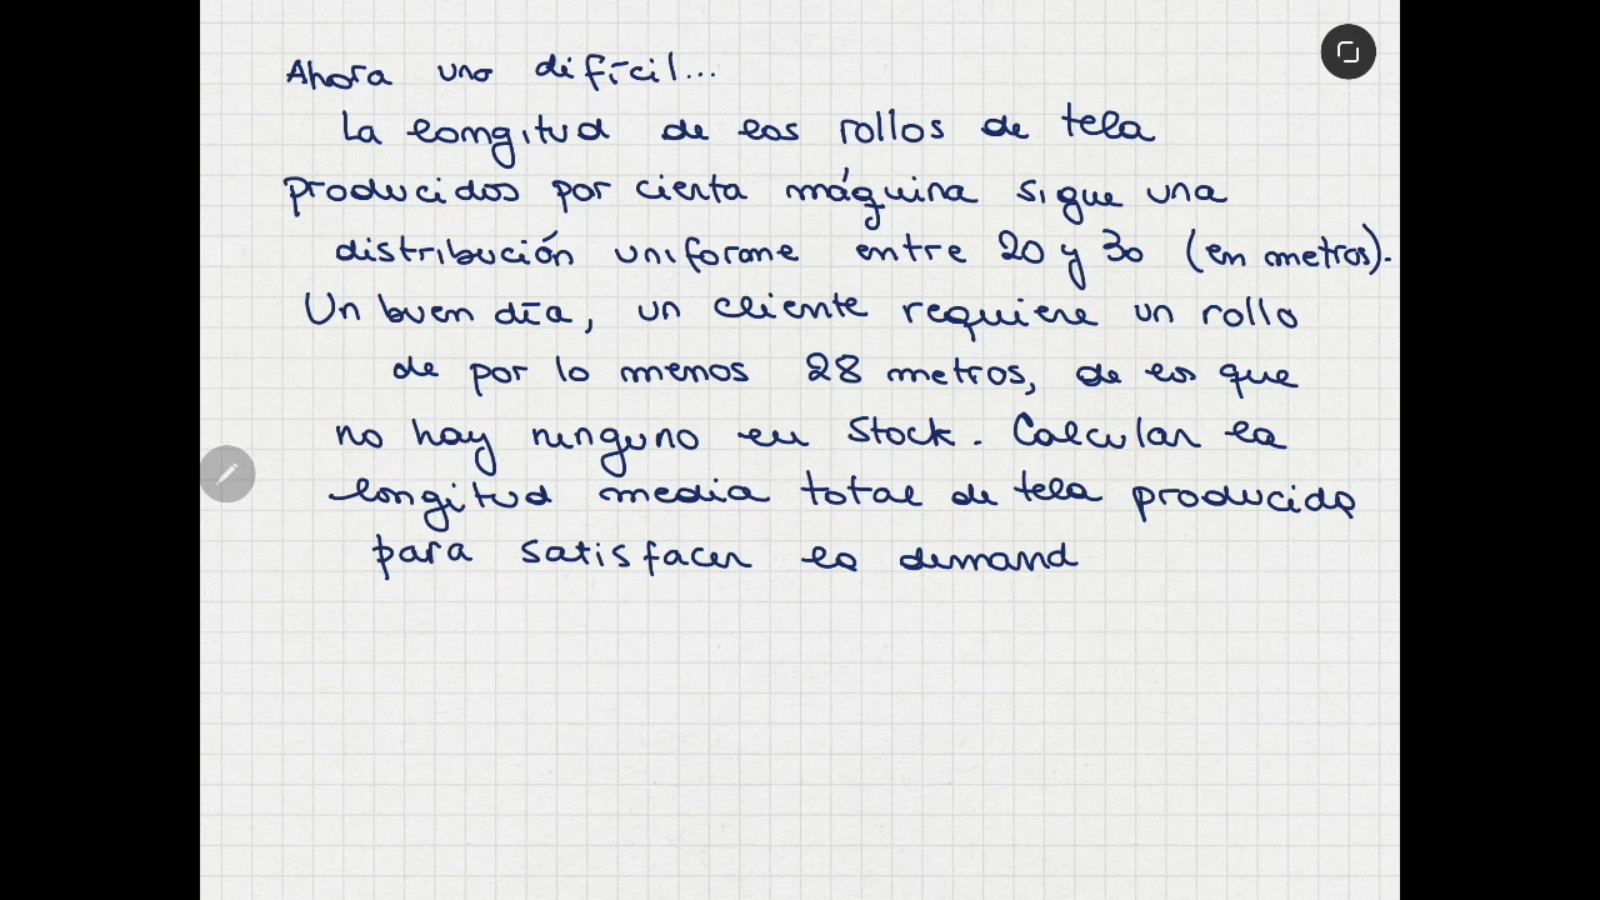 Ahora uno difícil...
La longitud de los rollos de tela
producidos por cierta máquina sigue una
distribución uniforme entre 20 y 30 (en metros).
Un buen día, un cliente requiere un rollo
de por lo menos 28 metros, de los que
no hay ninguno en stock. Calcular la
longitud media total de tela producida
para satisfacer la demand